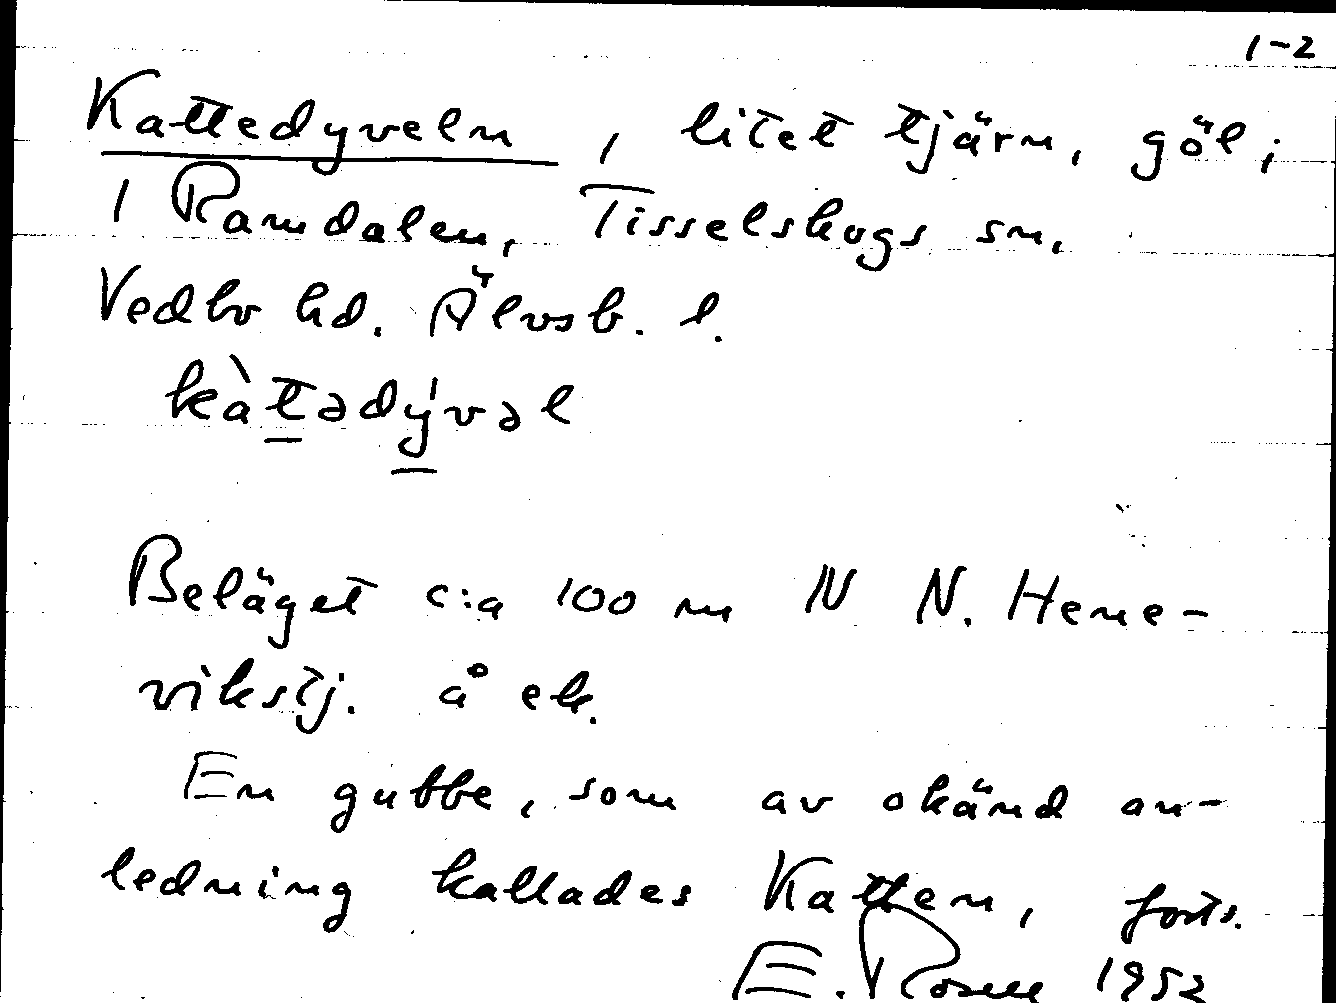 1-2
Kattedyveln, litet tjärn, göl;
i Ramdalen, Tisselskogs sn,
Vedbo hd. Älvsb. l.
kàtədývəl
Beläget c:a 100 m N N. Heme-
vikstj. å ek.
En gubbe, som av okänd an-
ledning kallades Katten, forts.
E. Rosell 1952